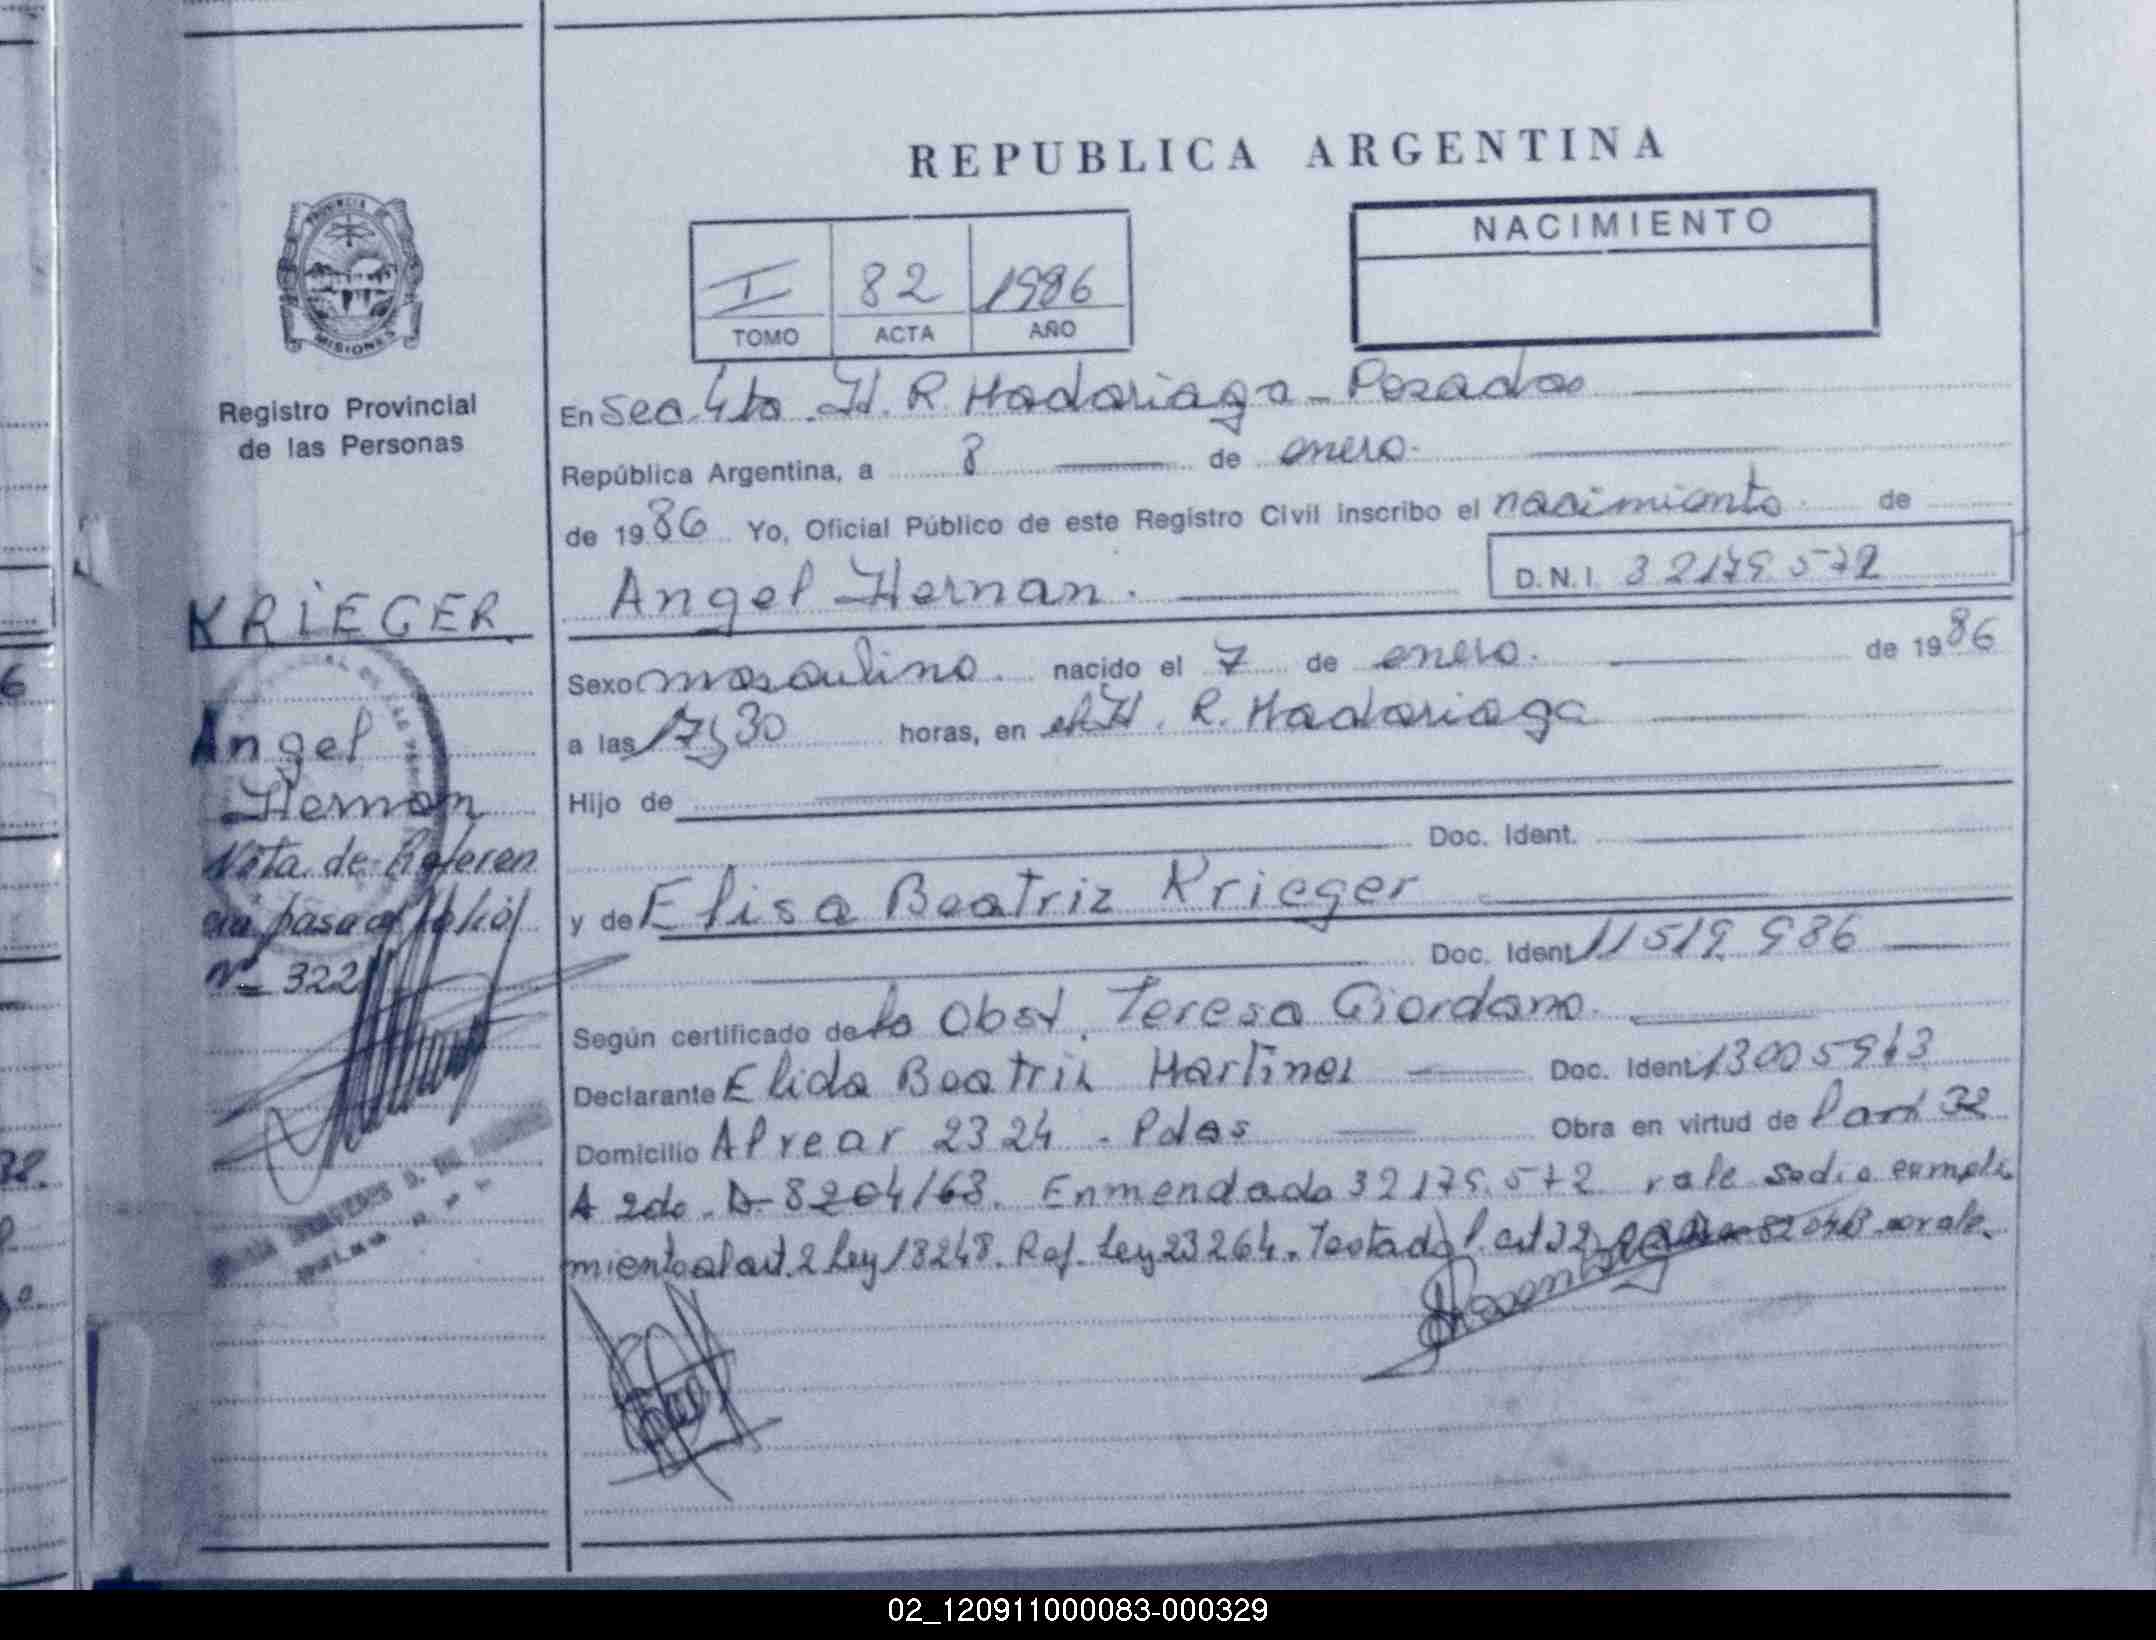 REPUBLICA ARGENTINA
NACIMIENTO
I 82 1986
TOMO ACTA AÑO
PROVINCIA DE
MISIONES
Registro Provincial
de las Personas
KRIEGER
Angel
Hernan
Nota de Referen
cia pasa al folio
Nº 322
En Sec. 4ta. H. R. Madariaga - Posadas
República Argentina, a 8 de enero.
de 1986 Yo, Oficial Público de este Registro Civil inscribo el nacimiento de
Angel Hernan. D.N.I. 32179572
Sexo masculino. nacido el 7 de enero. de 1986
a las 17,30 horas, en el H. R. Madariaga
Hijo de
Doc. Ident.
y de Elisa Beatriz Krieger
Doc. Ident. 11519.986
Según certificado de la Obst. Teresa Giordano.
Declarante Elida Beatriz Martinez Doc. Ident. 13005943
Domicilio Alvear 2324 - Pdas Obra en virtud de l art 32
A 2do. D- 8204/63. Enmendado 32179.572 vale Se dio cumpli
miento al art. 2 Ley 18248. Ref. Ley 23264. Testado l. art 32 8204/63 no vale.
02_120911000083-000329